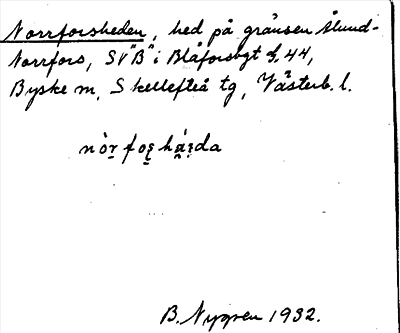 Norrforsheden, hed på gränsen Ålund-
Norrfors, SV "B" i Blåforsbgt 44,
Byske sn, Skellefteå tg, Västerb. l.
nòr̠foṣ̌há̤ṛda
B. Nygren 1932.